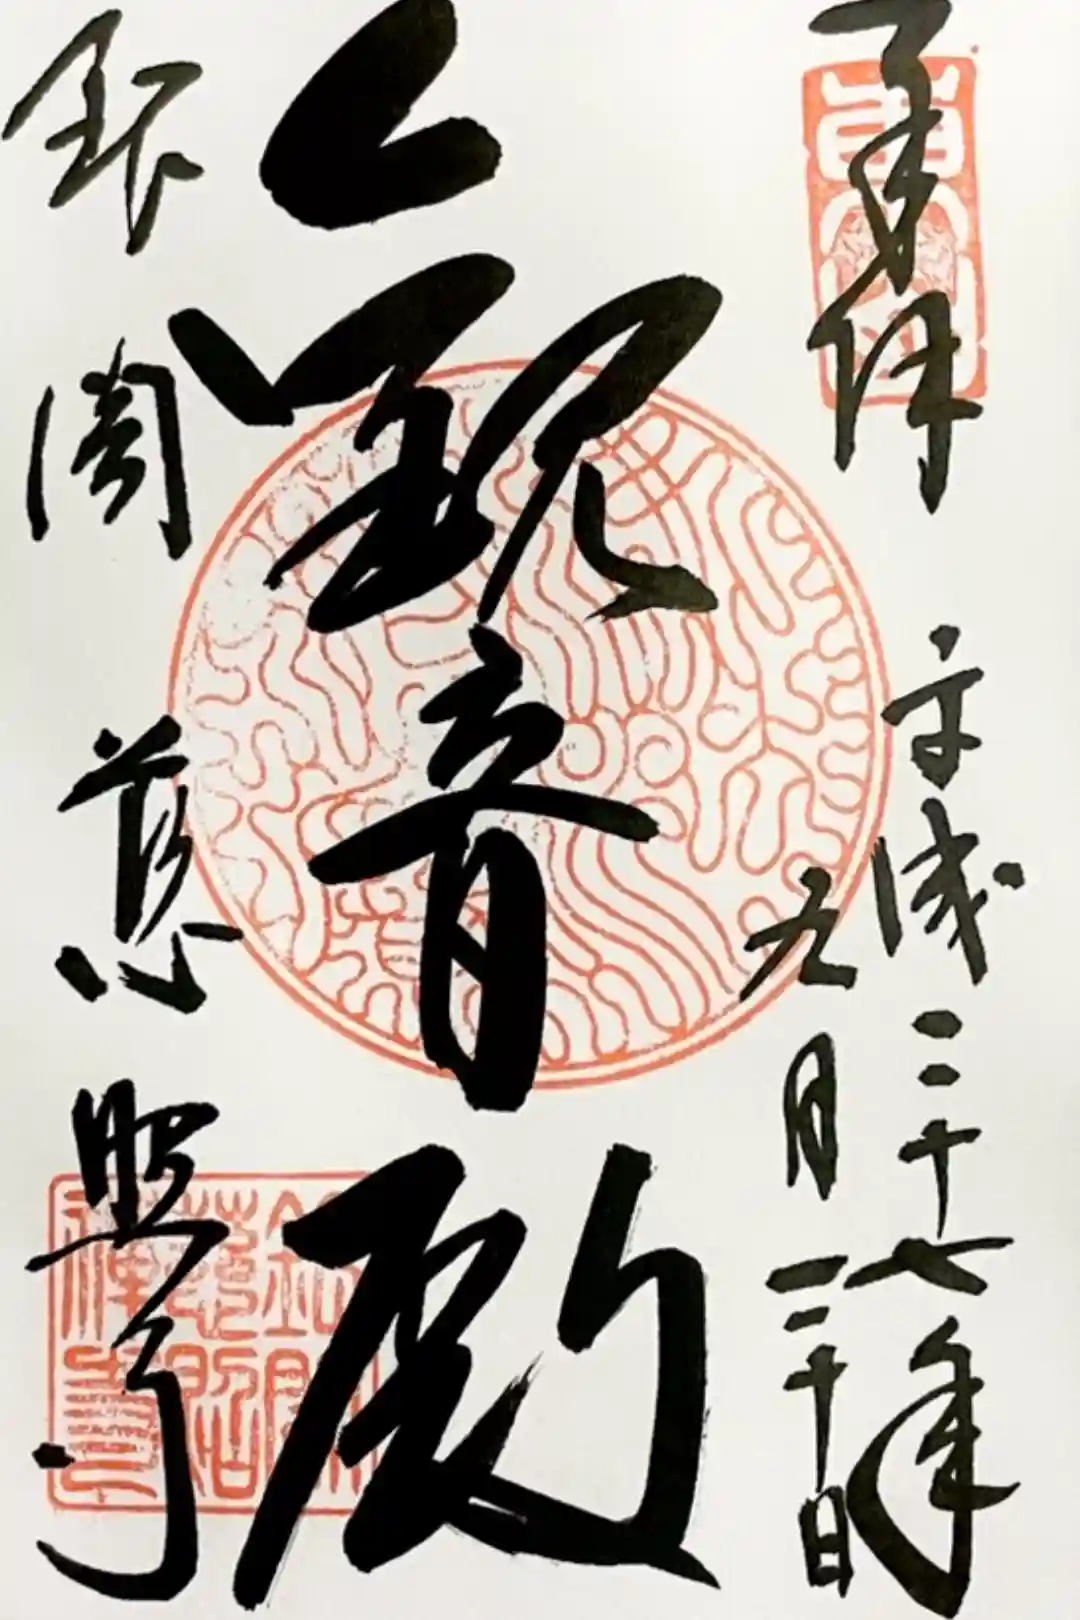 奉拝
平成二十七年
九月二十日
観音殿
銀閣慈照寺